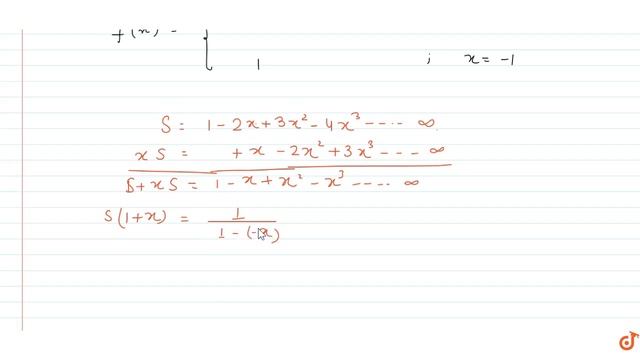 f(x) = {
1 ; x = -1
S = 1 - 2x + 3x² - 4x³ ---- ∞
xS = + x - 2x² + 3x³ --- ∞
S + xS = 1 - x + x² - x³ ---- ∞
S(1+x) = 1 / 1 - (-x)